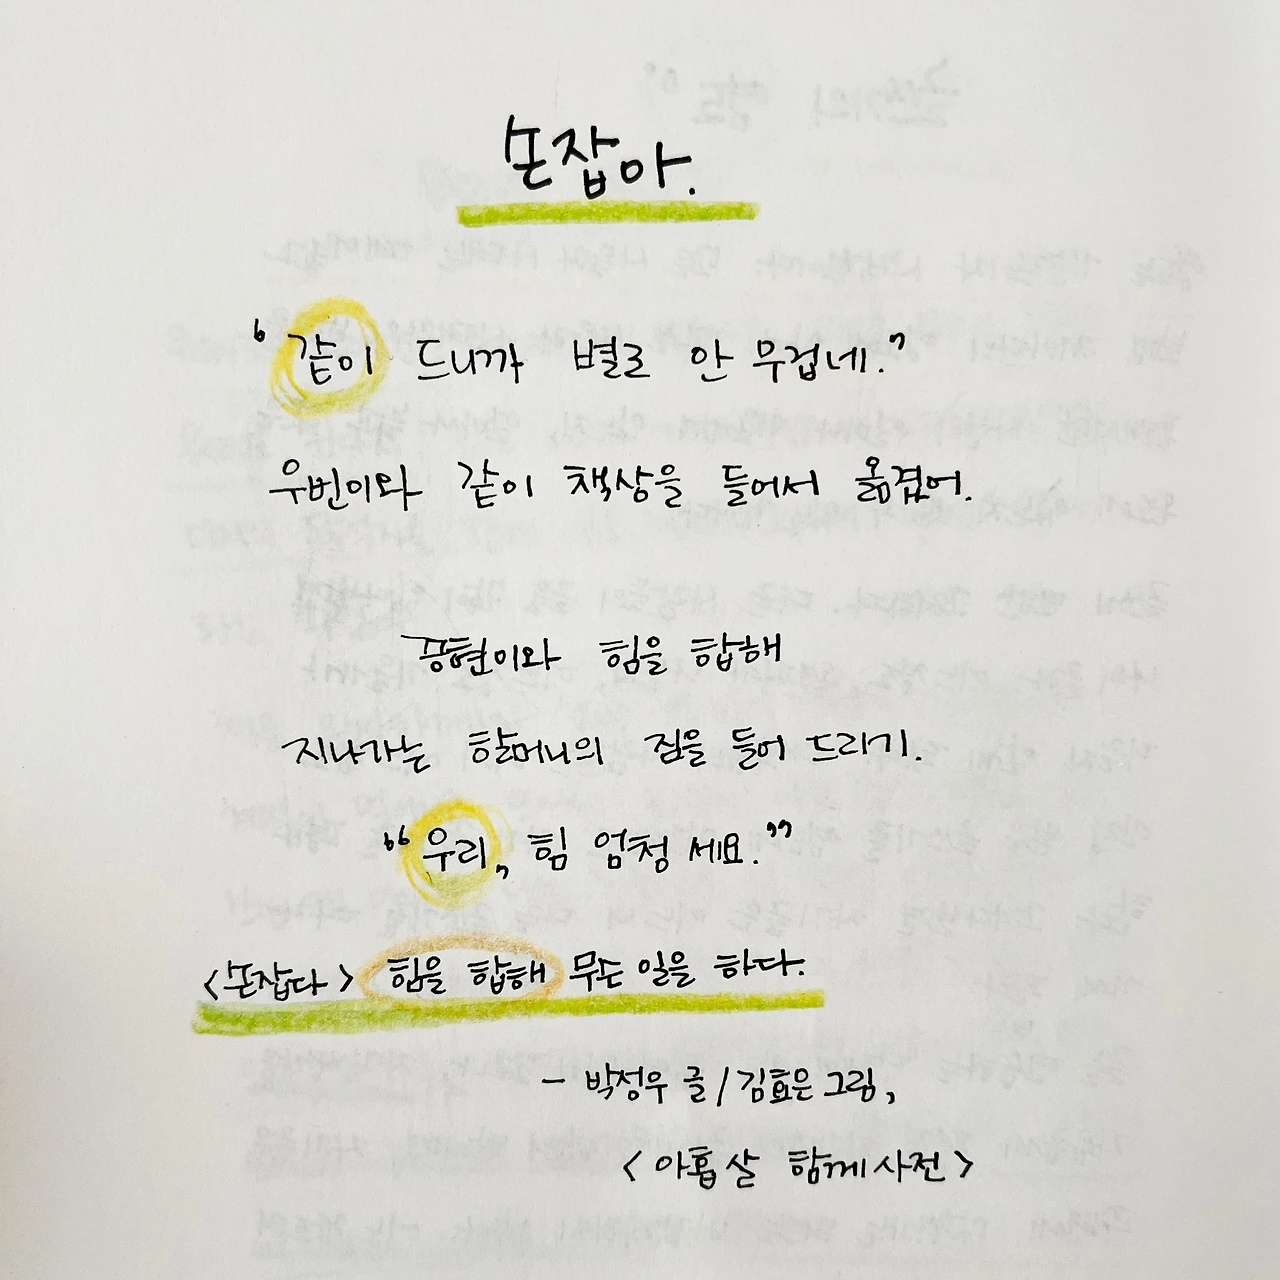 손잡아.
‘같이 드니까 별로 안 무겁네.’
우빈이와 같이 책상을 들어서 옮겼어.
승현이와 힘을 합해
지나가는 할머니의 짐을 들어 드리기.
“우리, 힘 엄청 세요.”
<손잡다> 힘을 합해 무슨 일을 하다.
- 박성우 글 / 김효은 그림,
<아홉 살 함께 사전>